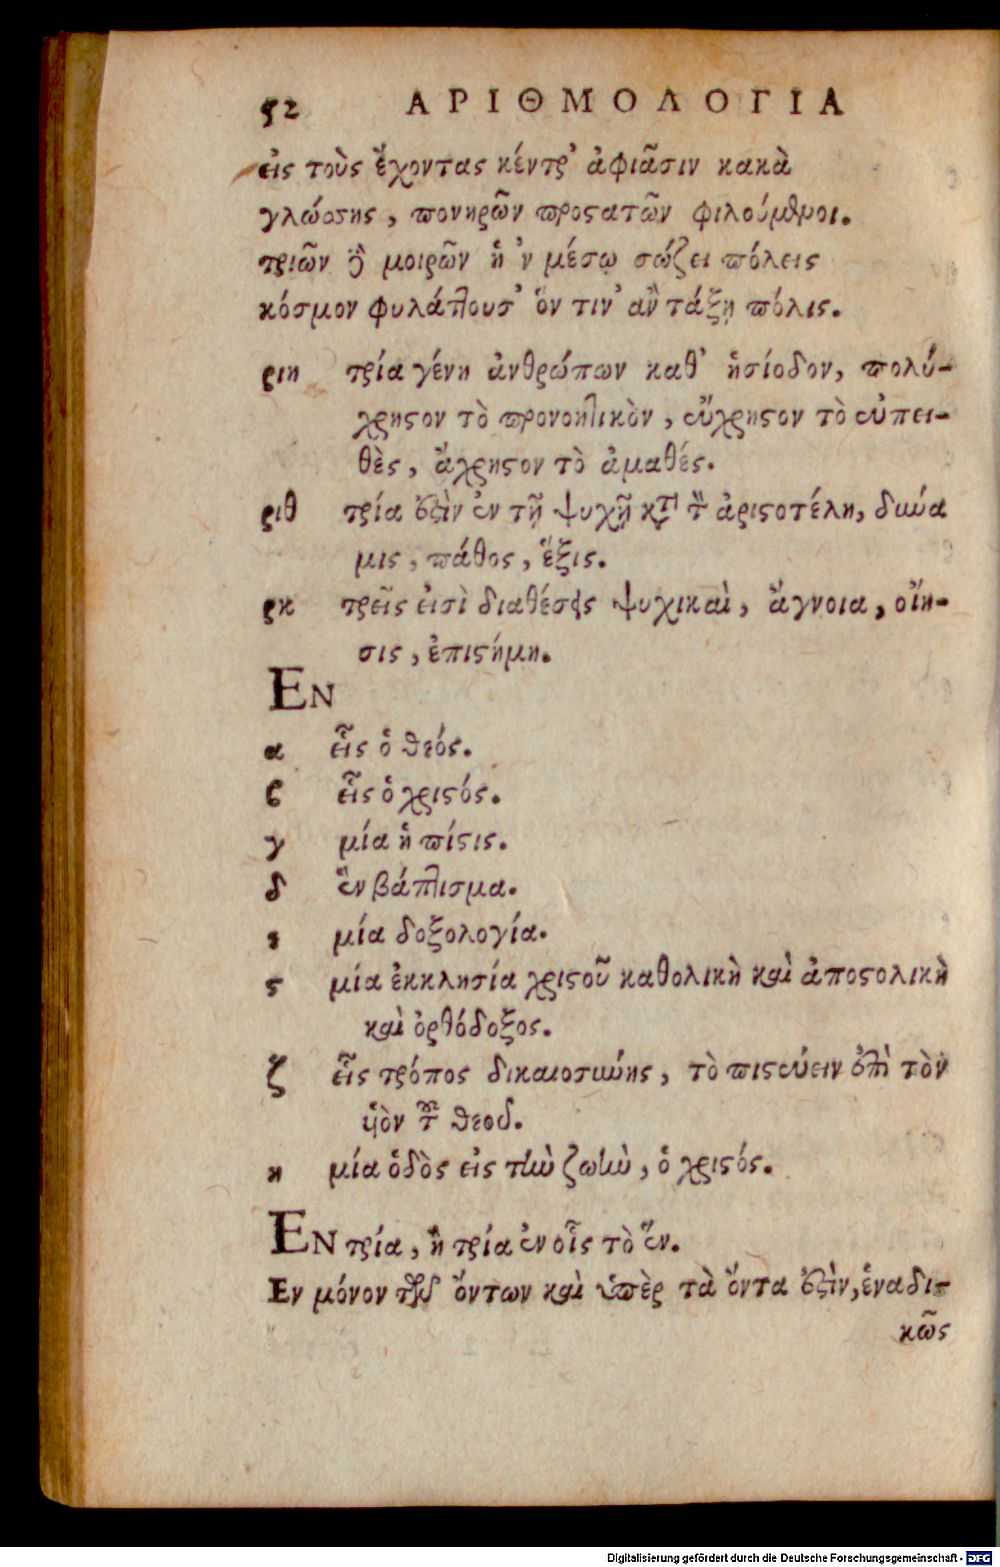 52 ΑΡΙΘΜΟΛΟΓΙΑ
εἰς τοὺς ἔχοντας κέντρ' ἀφιᾶσιν κακὰ
γλώσσης, πονηρῶν προστατῶν φιλούμενοι.
τριῶν δὲ μοιρῶν ἡ 'ν μέσῳ σώζει πόλεις
κόσμον φυλάττουσ' ὅν τιν' ἂν τάξῃ πόλις.
ριη τρία γένη ἀνθρώπων καθ' ἡσίοδον, πολύ-
χρηστον τὸ προνοητικὸν, εὔχρηστον τὸ εὐπει-
θὲς, ἄχρηστον τὸ ἀμαθές.
ριθ τρία ἐστὶν ἐν τῇ ψυχῇ κατὰ τὸν ἀριστοτέλη, δύνα
μις, πάθος, ἕξις.
ρκ τρεῖς εἰσὶ διαθέσεις ψυχικαὶ, ἄγνοια, οἴη-
σις, ἐπιστήμη.
ΕΝ
α εἷς ὁ θεός.
β εἷς ὁ χριστός.
γ μία ἡ πίστις.
δ ἓν βάπτισμα.
ε μία δοξολογία.
ϛ μία ἐκκλησία χριστοῦ καθολικὴ καὶ ἀποστολικὴ
καὶ ὀρθόδοξος.
ζ εἷς τρόπος δικαιοσύνης, τὸ πιστεύειν ἐπὶ τὸν
υἱὸν τοῦ θεοῦ.
η μία ὁδὸς εἰς τὴν ζωὴν, ὁ χριστός.
ΕΝ τρία, ἢ τρία ἐν οἷς τὸ ἕν.
Εν μόνον τῶν ὄντων καὶ ὑπὲρ τὰ ὄντα ἐστὶν, ἑναδι-
κῶς
Digitalisierung gefördert durch die Deutsche Forschungsgemeinschaft - DFG